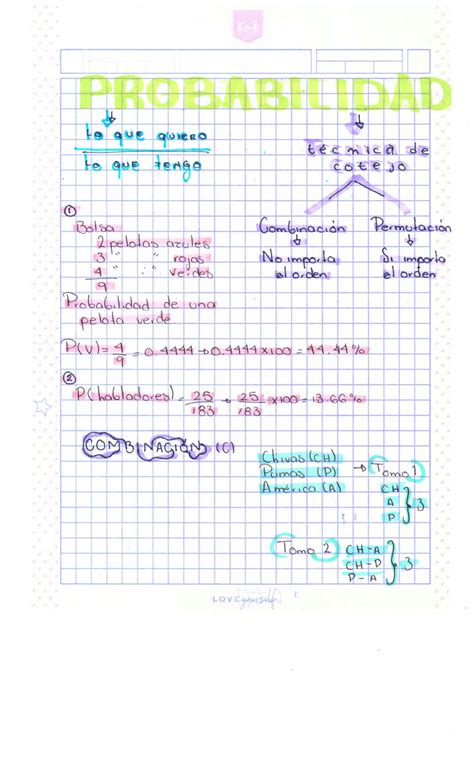 PROBABILIDAD
lo que quiero
lo que tengo
técnica de
cotejo
Combinación
No importa
el orden
Permutación
Si importa
el orden
①
Bolsa
2 pelotas azules
3 " " rojas
4 " " verdes
9
Probabilidad de una
pelota verde
P(V)= 4/9 = 0.4444 → 0.4444x100 = 44.44%
②
P(habladores)= 25/183 → 25/183 x100 = 13.66%
COMBINACIÓN (C)
Chivas (CH)
Pumas (P)
América (A)
→ Tomo 1
CH
A
P
3
Tomo 2
CH-A
CH-P
P-A
3
LOVE yourself